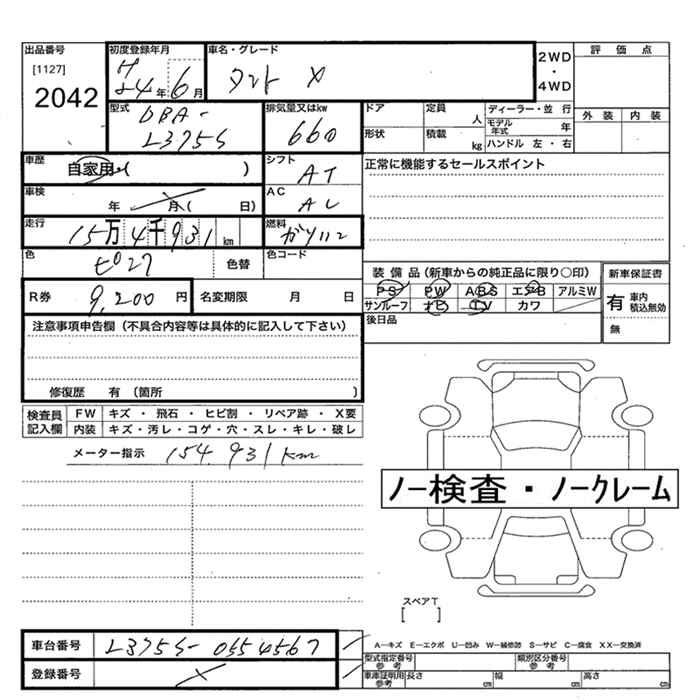 出品番号 初度登録年月 車名・グレード 2WD 評価点
[1127] H
2042 24年 6月 タント X ・ 4WD
型式 排気量又はkw ドア 定員 人 ディーラー・並行 外装 内装
DBA- モデル年式 年
L375S 660 形状 積載 kg ハンドル 左・右
車歴 自家用・( ) シフト AT 正常に機能するセールスポイント
車検 年 月( 日) AC AC
走行 15万4千931km 燃料 ガソリン
色 色替 色コード
装備品(新車からの純正品に限り○印) 新車保証書
R券 9,200円 名変期限 月 日 PS PW ABS エアB アルミW 有 車内積込無効
サンルーフ ナビ TV カワ 無
注意事項申告欄(不具合内容等は具体的に記入して下さい) 後日品
修復歴 有(箇所 )
検査員記入欄 FW キズ・飛石・ヒビ割・リペア跡・X要
内装 キズ・汚レ・コゲ・穴・スレ・キレ・破レ
メーター指示 154,931km
ノー検査・ノークレーム
スペアT
[ ]
車台番号 L375S-0554567 A−キズ E−エクボ U−凹み W−補修跡 S−サビ C−腐食 XX−交換済
登録番号 型式指定番号 参考 類別区分番号 参考
車庫証明用 参考 長さ cm 幅 cm 高さ cm